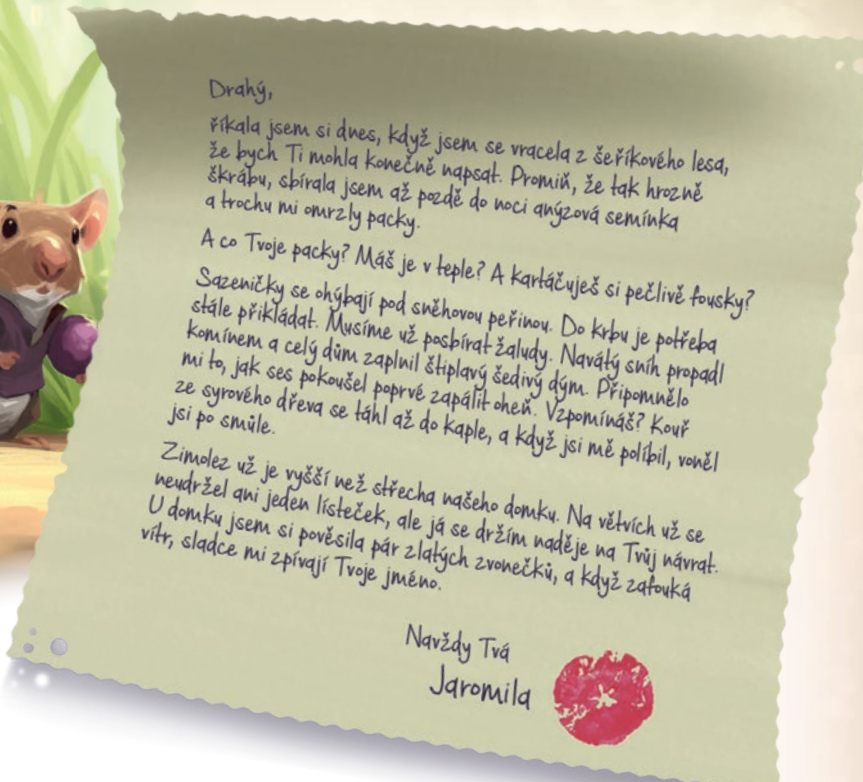 Drahý,
říkala jsem si dnes, když jsem se vracela z šeříkového lesa,
že bych Ti mohla konečně napsat. Promiň, že tak hrozně
škrábu, sbírala jsem až pozdě do noci anýzová semínka
a trochu mi omrzly packy.
A co Tvoje packy? Máš je v teple? A kartáčuješ si pečlivě fousky?
Sazeničky se ohýbají pod sněhovou peřinou. Do krbu je potřeba
stále přikládat. Musíme už posbírat žaludy. Navátý sníh propadl
komínem a celý dům zaplnil štiplavý šedivý dým. Připomnělo
mi to, jak ses pokoušel poprvé zapálit oheň. Vzpomínáš? Kouř
ze syrového dřeva se táhl až do kaple, a když jsi mě políbil, voněl
jsi po smůle.
Zimolez už je vyšší než střecha našeho domku. Na větvích už se
neudržel ani jeden lísteček, ale já se držím naděje na Tvůj návrat.
U domku jsem si pověsila pár zlatých zvonečků, a když zafouká
vítr, sladce mi zpívají Tvoje jméno.
Navždy Tvá
Jaromila